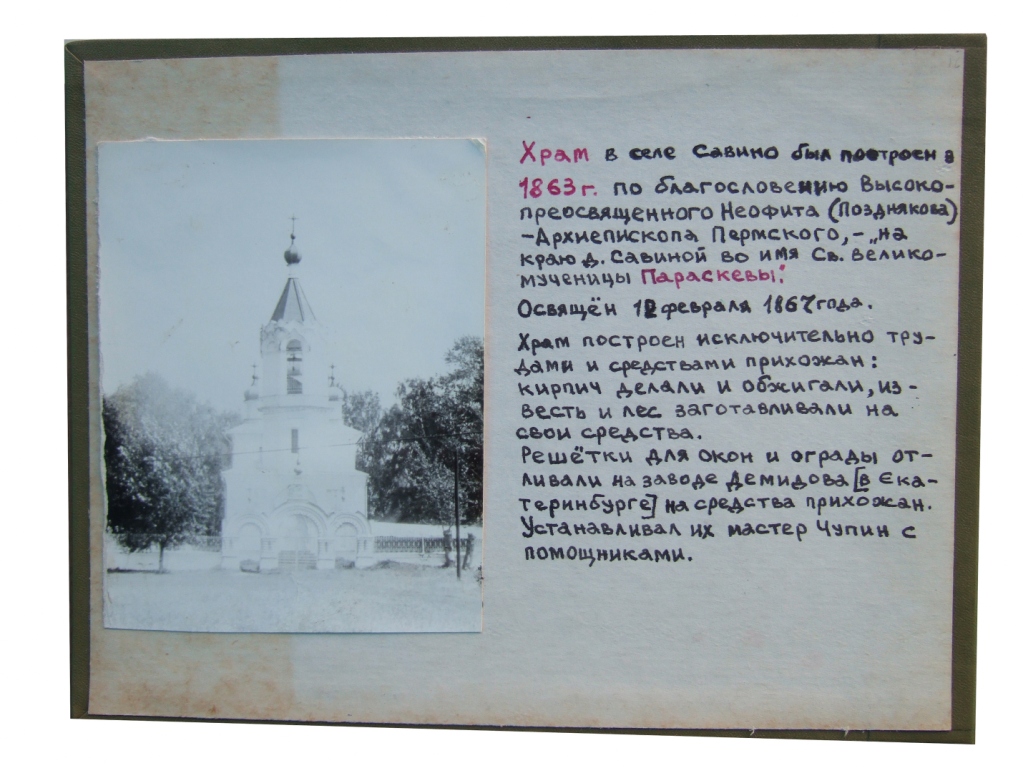 Храм в селе Савино был построен в
1863 г. по благословению Высоко-
преосвященного Неофита (Позднякова)
-Архиепископа Пермского,-„на
краю д. Савиной во имя Св. Велико-
мученицы Параскевы."
Освящён февраля года.
Храм построен исключительно тру-
дами и средствами прихожан:
кирпич делали и обжигали, из-
весть и лес заготавливали на
свои средства.
Решётки для окон и ограды от-
ливали на заводе Демидова [в Ека-
теринбурге] на средства прихожан.
Устанавливал их мастер Чупин с
помощниками.